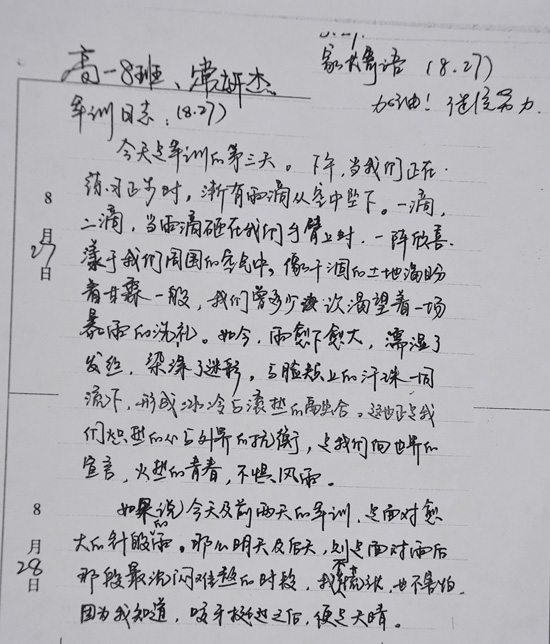 高一8班、常妍杰
家长寄语 (8.27)
加油！继续努力.
军训日志. (8.27)
8月27日
今天是军训的第三天。下午,当我们正在
练习正步时,渐有雨滴从空中坠下。一滴,
二滴,当雨滴砸在我们手臂上时,一阵欣喜
漾于我们周围的空气中。像干涸的土地渴盼
着甘霖一般,我们曾多少次渴望着一场
暴雨的洗礼。如今,雨愈下愈大,濡湿了
发丝,染深了迷彩,与脸颊上的汗珠一同
流下,形成冰冷与滚热的离合。这也正是我
们炽热的心与外界的抗衡,是我们向世界的
宣言,火热的青春,不惧风雨。
8月28日
如果说今天及前两天的军训,是面对愈
大的针般雨。那么明天及后天,则是面对雨后
那段最沉闷难熬的时段,我不慌张,也不害怕.
因为我知道,咬牙挺过之后,便是天晴。